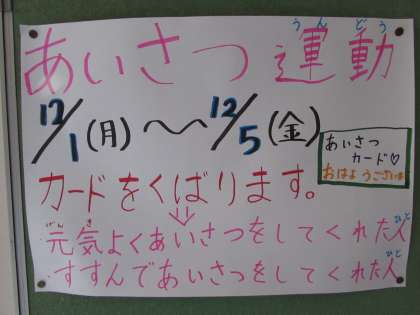 あいさつ運動
うんどう
12/1(月)〜12/5(金)
あいさつ
カード♡
おはようございます
カードをくばります。
↓
元気よくあいさつをしてくれた人
げんき ひと
すすんであいさつをしてくれた人
ひと